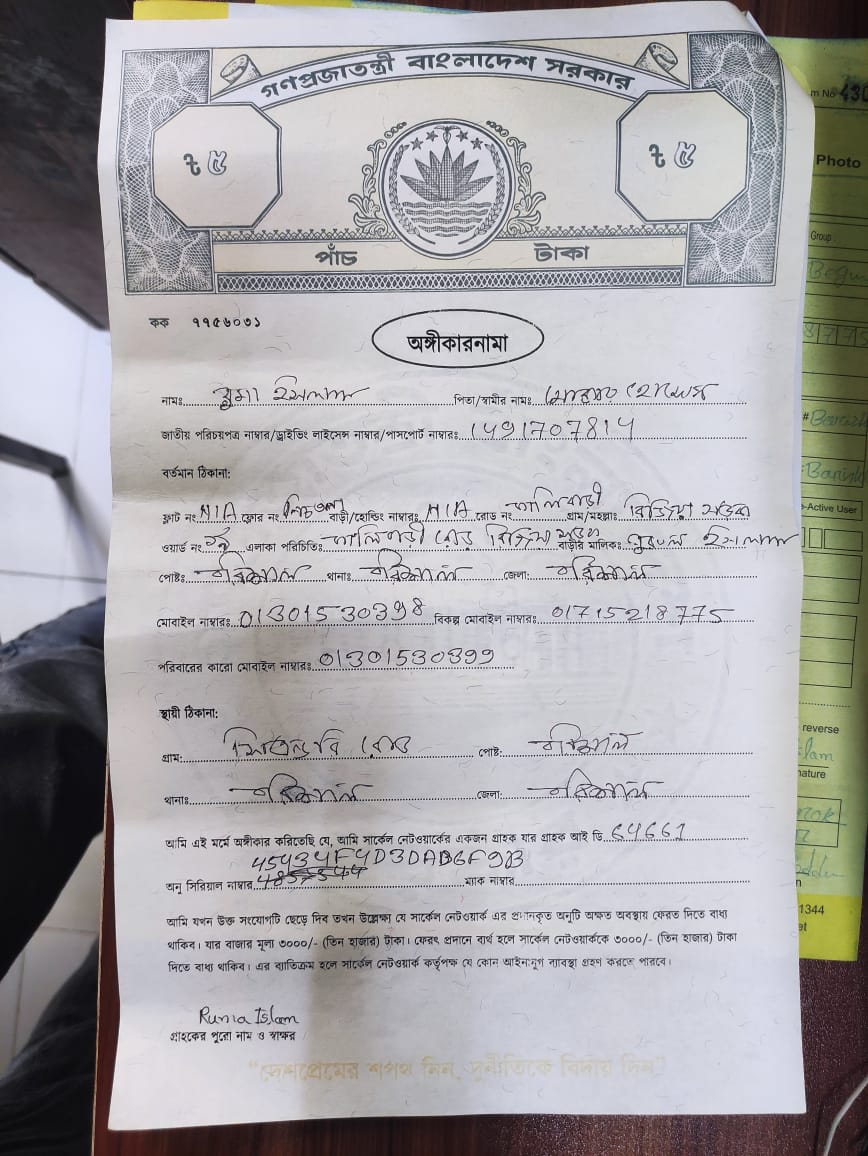 গণপ্রজাতন্ত্রী বাংলাদেশ সরকার
৳ ৫ ৳ ৫
পাঁচ টাকা
কক ৭৭৫৬০৩১
অঙ্গীকারনামা
নামঃ ইসলাম পিতা/স্বামীর নামঃ হোসেন
জাতীয় পরিচয়পত্র নাম্বার/ড্রাইভিং লাইসেন্স নাম্বার/পাসপোর্ট নাম্বারঃ 1491707814
বর্তমান ঠিকানা:
ফ্লাট নং N/A ফ্লোর নং নিচতলা বাড়ী/হোল্ডিং নাম্বারঃ N/A রোড নং গ্রাম/মহল্লাঃ সড়ক
ওয়ার্ড নং এলাকা পরিচিতিঃ রোড সড়ক বাড়ীর মালিকঃ ইসলাম
পোষ্টঃ বরিশাল থানাঃ বরিশাল জেলা: বরিশাল
মোবাইল নাম্বারঃ 01301530398 বিকল্প মোবাইল নাম্বারঃ 01715218775
পরিবারের কারো মোবাইল নাম্বারঃ 01301530399
স্থায়ী ঠিকানা:
গ্রাম: রোড পোষ্ট: বরিশাল
থানাঃ বরিশাল জেলা: বরিশাল
আমি এই মর্মে অঙ্গীকার করিতেছি যে, আমি সার্কেল নেটওয়ার্কের একজন গ্রাহক যার গ্রাহক আই ডি 64661
45434F4D3DAB6F9B
অনু সিরিয়াল নাম্বার ম্যাক নাম্বার
আমি যখন উক্ত সংযোগটি ছেড়ে দিব তখন উল্লেক্ষ্য যে সার্কেল নেটওয়ার্ক এর প্রদানকৃত অনুটি অক্ষত অবস্থায় ফেরত দিতে বাধ্য
থাকিব। যার বাজার মূল্য ৩০০০/- (তিন হাজার) টাকা। ফেরৎ প্রদানে ব্যর্থ হলে সার্কেল নেটওয়ার্ককে ৩০০০/- (তিন হাজার) টাকা
দিতে বাধ্য থাকিব। এর ব্যতিক্রম হলে সার্কেল নেটওয়ার্ক কর্তৃপক্ষ যে কোন আইনানুগ ব্যাবস্থা গ্রহণ করতে পারবে।
Runia Islam
গ্রাহকের পুরো নাম ও স্বাক্ষর
"দেশপ্রেমের শপথ নিন, দুর্নীতিকে বিদায় দিন"
m No 430
Photo
Group
-Active User
reverse
lam
nature
1344
et